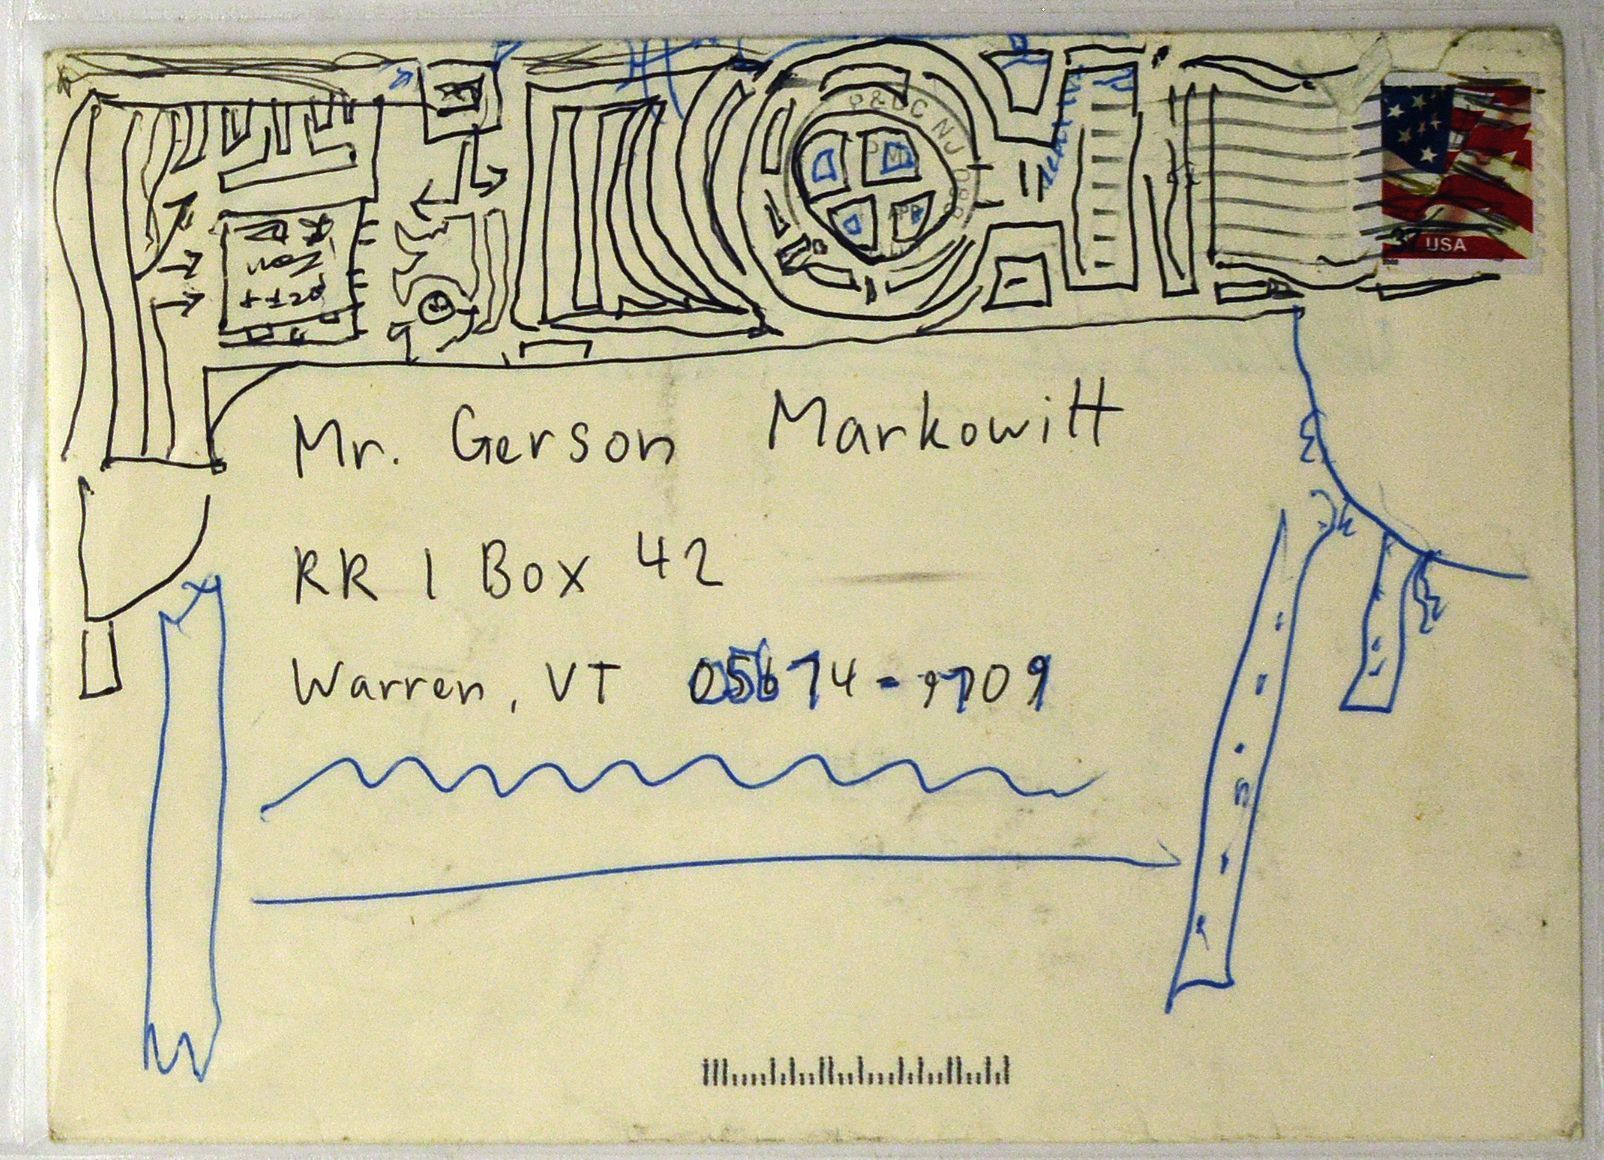 P&DC NJ 080
APR
USA
Mr. Gerson Markowitt
RR 1 Box 42
Warren, VT 05674-9709